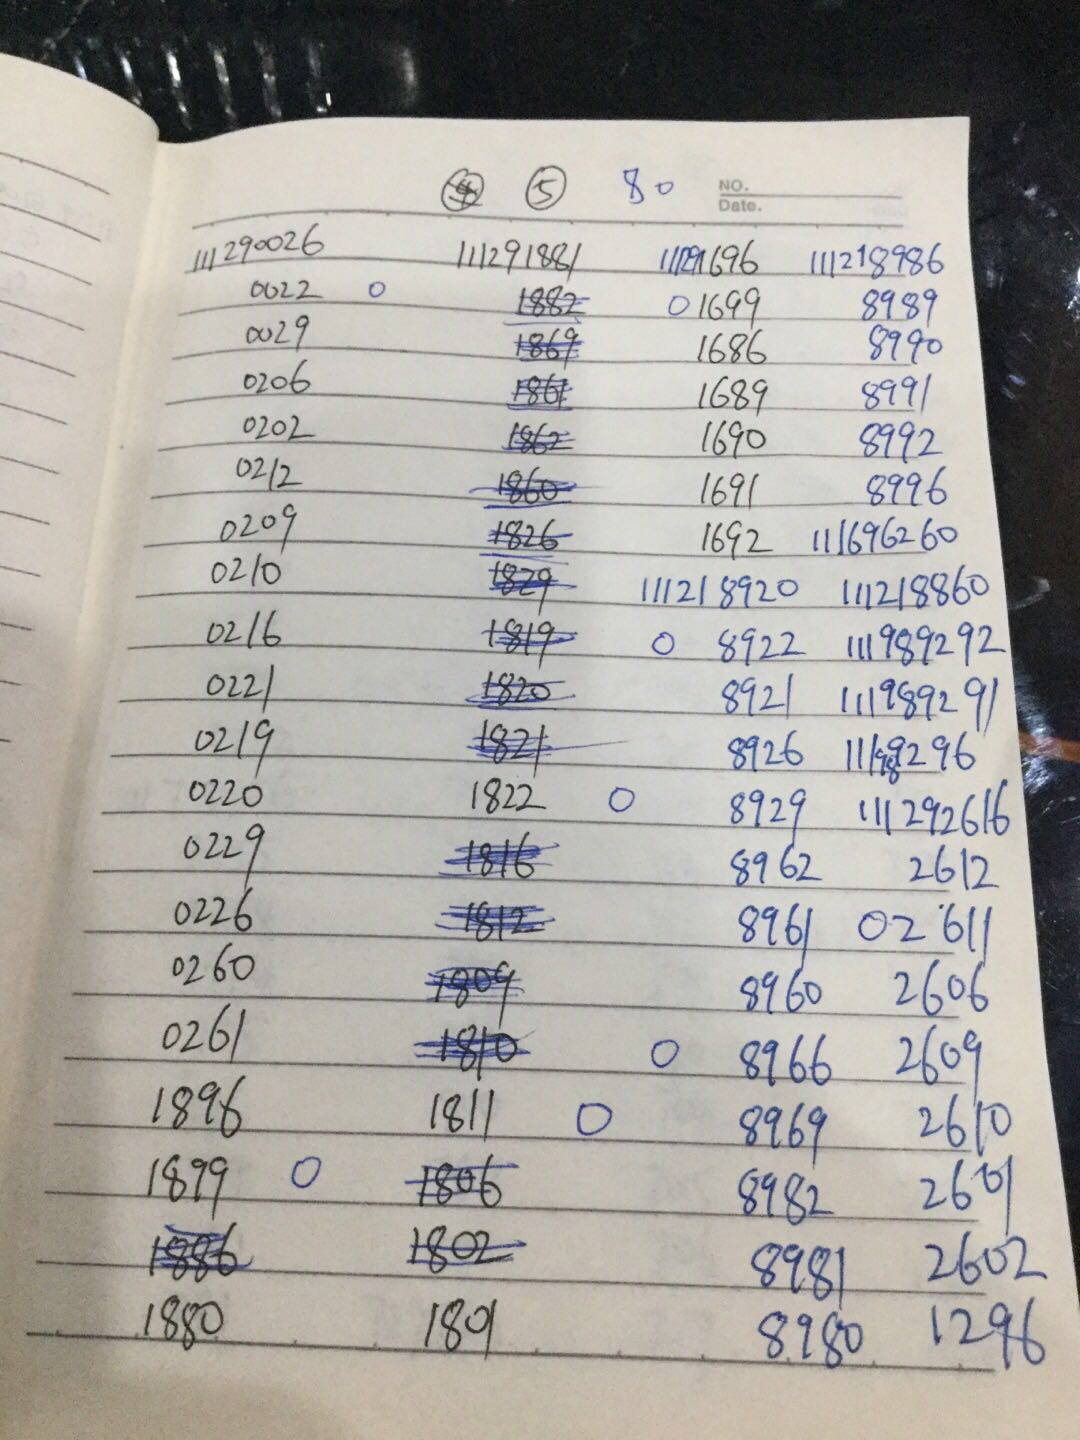 ⑤ 80 NO.
Date.
111290026 111291881 111291696 111218986
0022 o 1882 o 1699 8989
0029 1869 1686 8990
0206 1861 1689 8991
0202 1862 1690 8992
0212 1860 1691 8996
0209 1826 1692 111696260
0210 1829 111218920 111218860
0216 1819 o 8922 111989292
0221 1820 8921 111989291
0219 1821 8926 111989296
0220 1822 o 8929 111292616
0229 1816 8962 2612
0226 1812 8961 02611
0260 1809 8960 2606
0261 1810 o 8966 2609
1896 1811 o 8969 2610
1899 o 1806 8982 2601
1886 1802 8981 2602
1880 1801 8980 1296